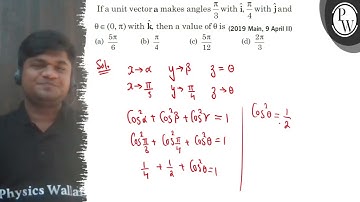 If a unit vector a makes angles π/3 with i, π/4 with j and
θ ∈ (0, π) with k, then a value of θ is (2019 Main, 9 April II)
(a) 5π/6 (b) π/4 (c) 5π/12 (d) 2π/3
Sol. x→α y→β z = θ
x→π/3 y→π/4 z→θ
Cos²α + Cos²β + Cos²γ = 1
Cos²π/3 + Cos²π/4 + Cos²θ = 1
1/4 + 1/2 + Cos²θ = 1
Cos²θ = 1/2
PW
Physics Wallah